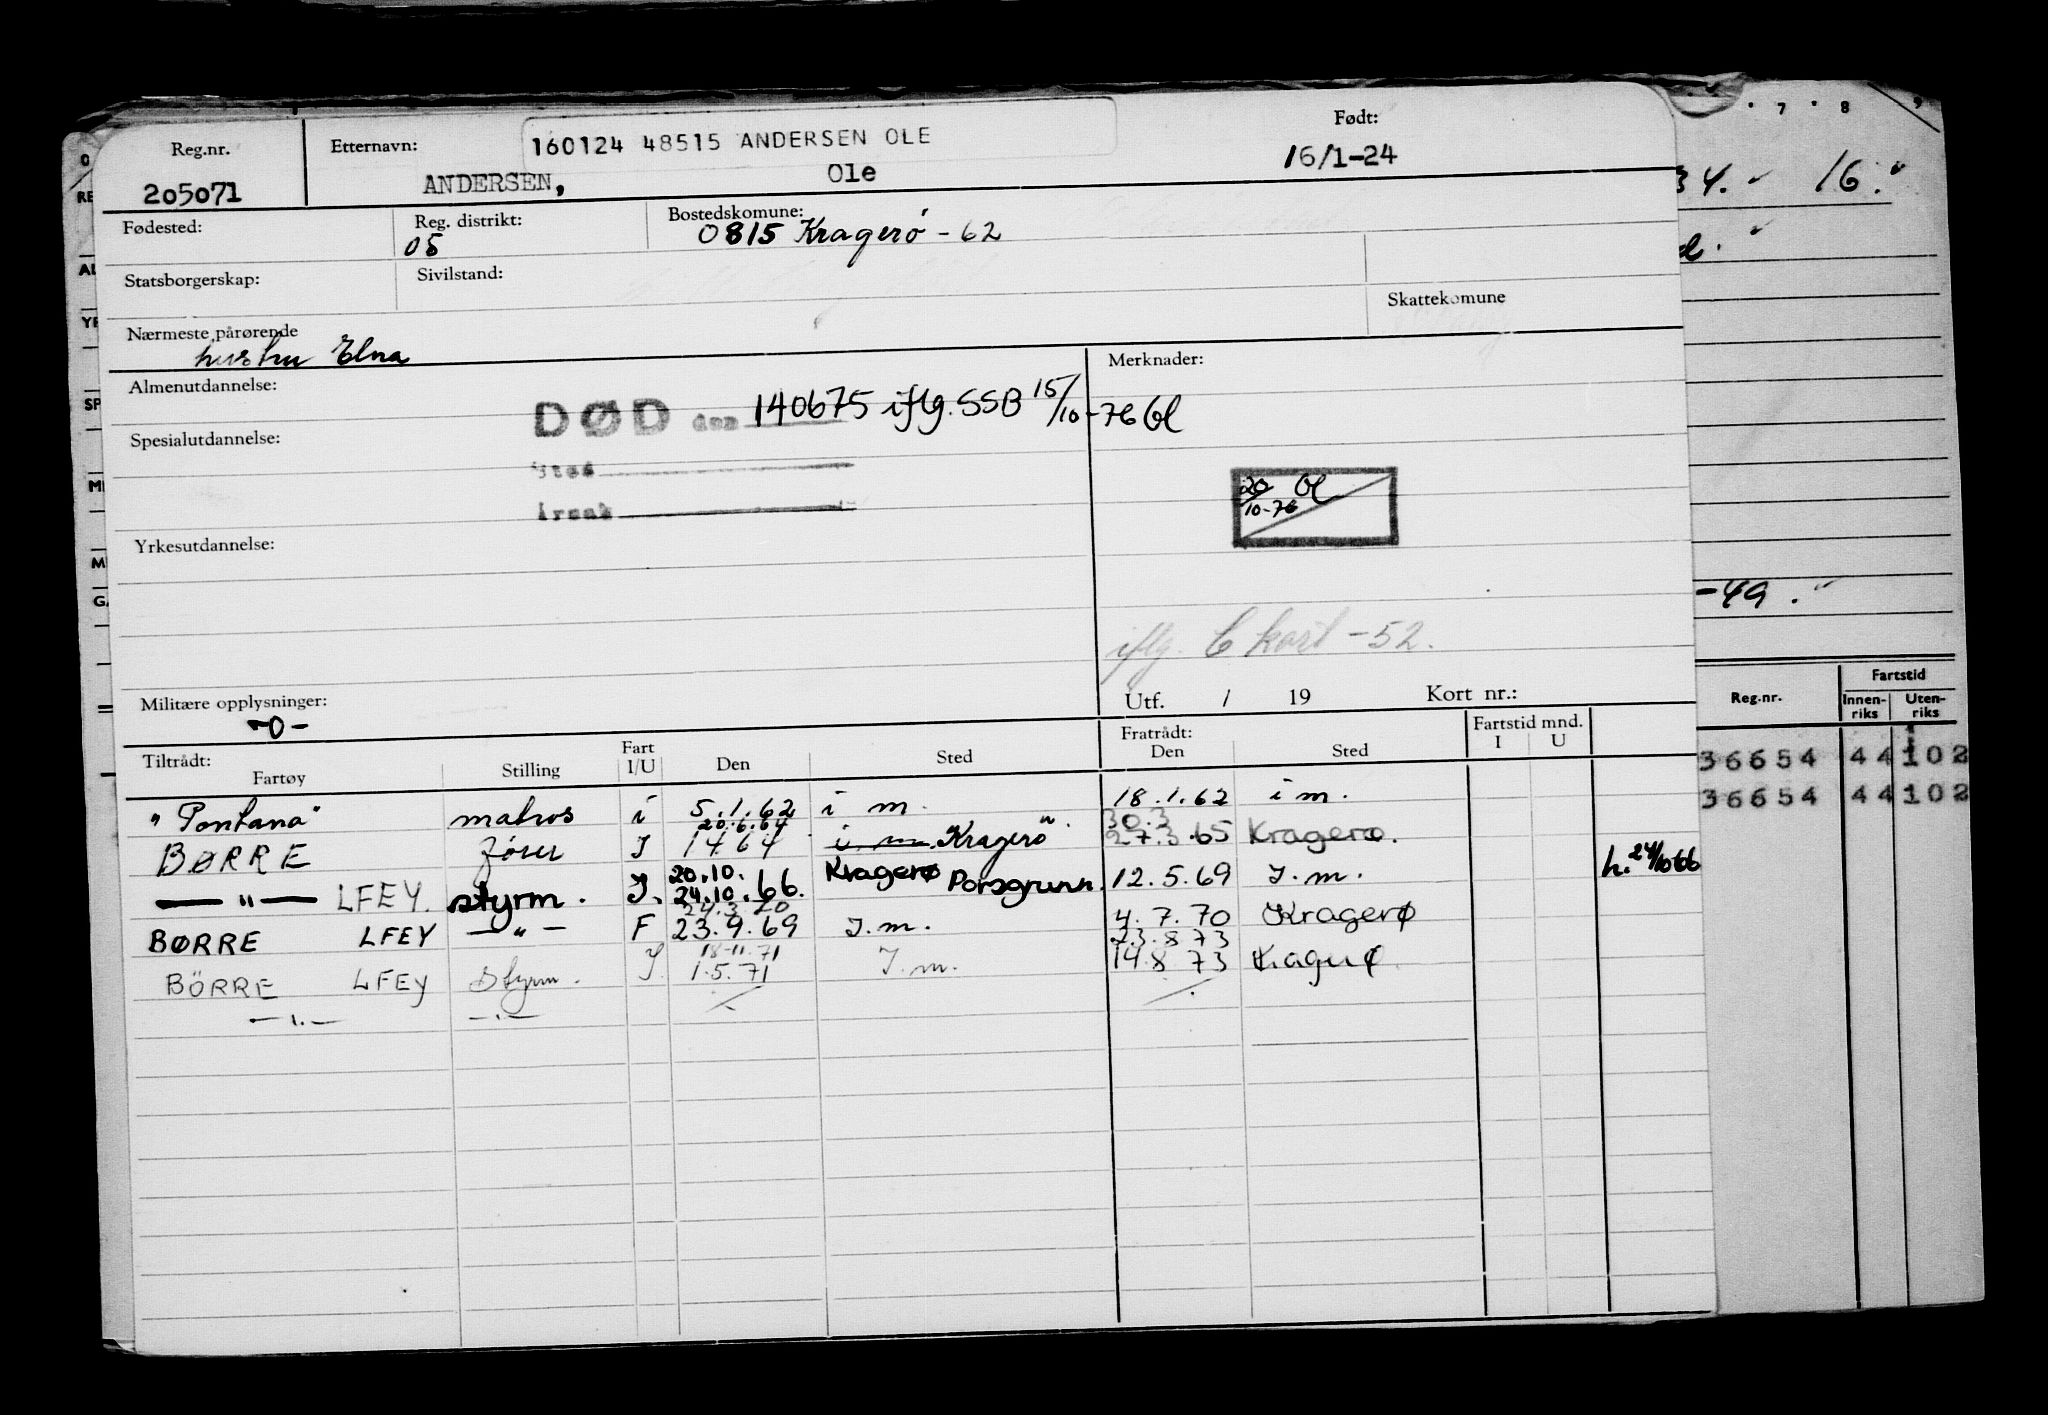 Reg.nr. Etternavn: 160124 48515 ANDERSEN OLE Født:
205071 ANDERSEN, Ole 16/1-24
Fødested: Reg. distrikt: 05 Bostedskomune: 0815 Kragerø - 62
Statsborgerskap: Sivilstand: Skattekomune
Nærmeste pårørende hustru Elna
Almenutdannelse: Merknader:
DØD den 140675 iflg. SSB 15/10-76 Gl
Spesialutdannelse:
Sted
Årsak
20/10-76 Gl
Yrkesutdannelse:
iflg. C kort -52.
Militære opplysninger: -0- Utf. / 19 Kort nr.:
Tiltrådt: Fratrådt: Fartstid mnd.
Fartøy Stilling Fart I/U Den Sted Den Sted I U
"Pontana" matros i 5.1.62 i m. 18.1.62 i m.
20.6.64 30.3
BØRRE fører I 1464 i. m. Kragerö 27.3.65 Kragerø.
20.10. Kragerø h. 24/10 66
— " — LFEY. styrm. I. 24.10.66. Porsgrunn. 12.5.69 I.m.
24.3.70
BØRRE LFEY — " — F 23.9.69 I.m. 4.7.70 Kragerø
18-11.71 23.8 73
BÖRRE LFEY Styrm. I. 1.5.71 I.m. 14.8 73 Kragerø
— " — — " —
7 8 9
34. 16.
-49.
Reg.nr. Fartstid
Innen-riks Uten-riks
36654 44 102
36654 44 102